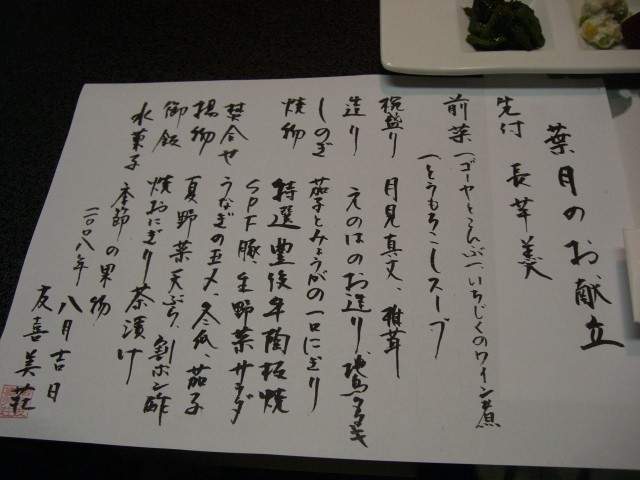 葉月のお献立
先付 長芋羹
前菜 一、ゴーヤとこんぶ 一、いちじくのワイン煮
一、とうもろこしスープ
椀盛り 月見真丈、椎茸
造り えのはのお造り 地鳥タタキ
しのぎ 茄子とみょうがの一口にぎり
焼物 特選豊後牛陶板焼
SPF豚、生野菜サラダ
焚合せ うなぎの玉〆、冬瓜、茄子
揚物 夏野菜天ぷら、割ポン酢
御飯 焼おにぎり茶漬け
水菓子 季節の果物
二〇〇八年 八月吉日
友喜美荘